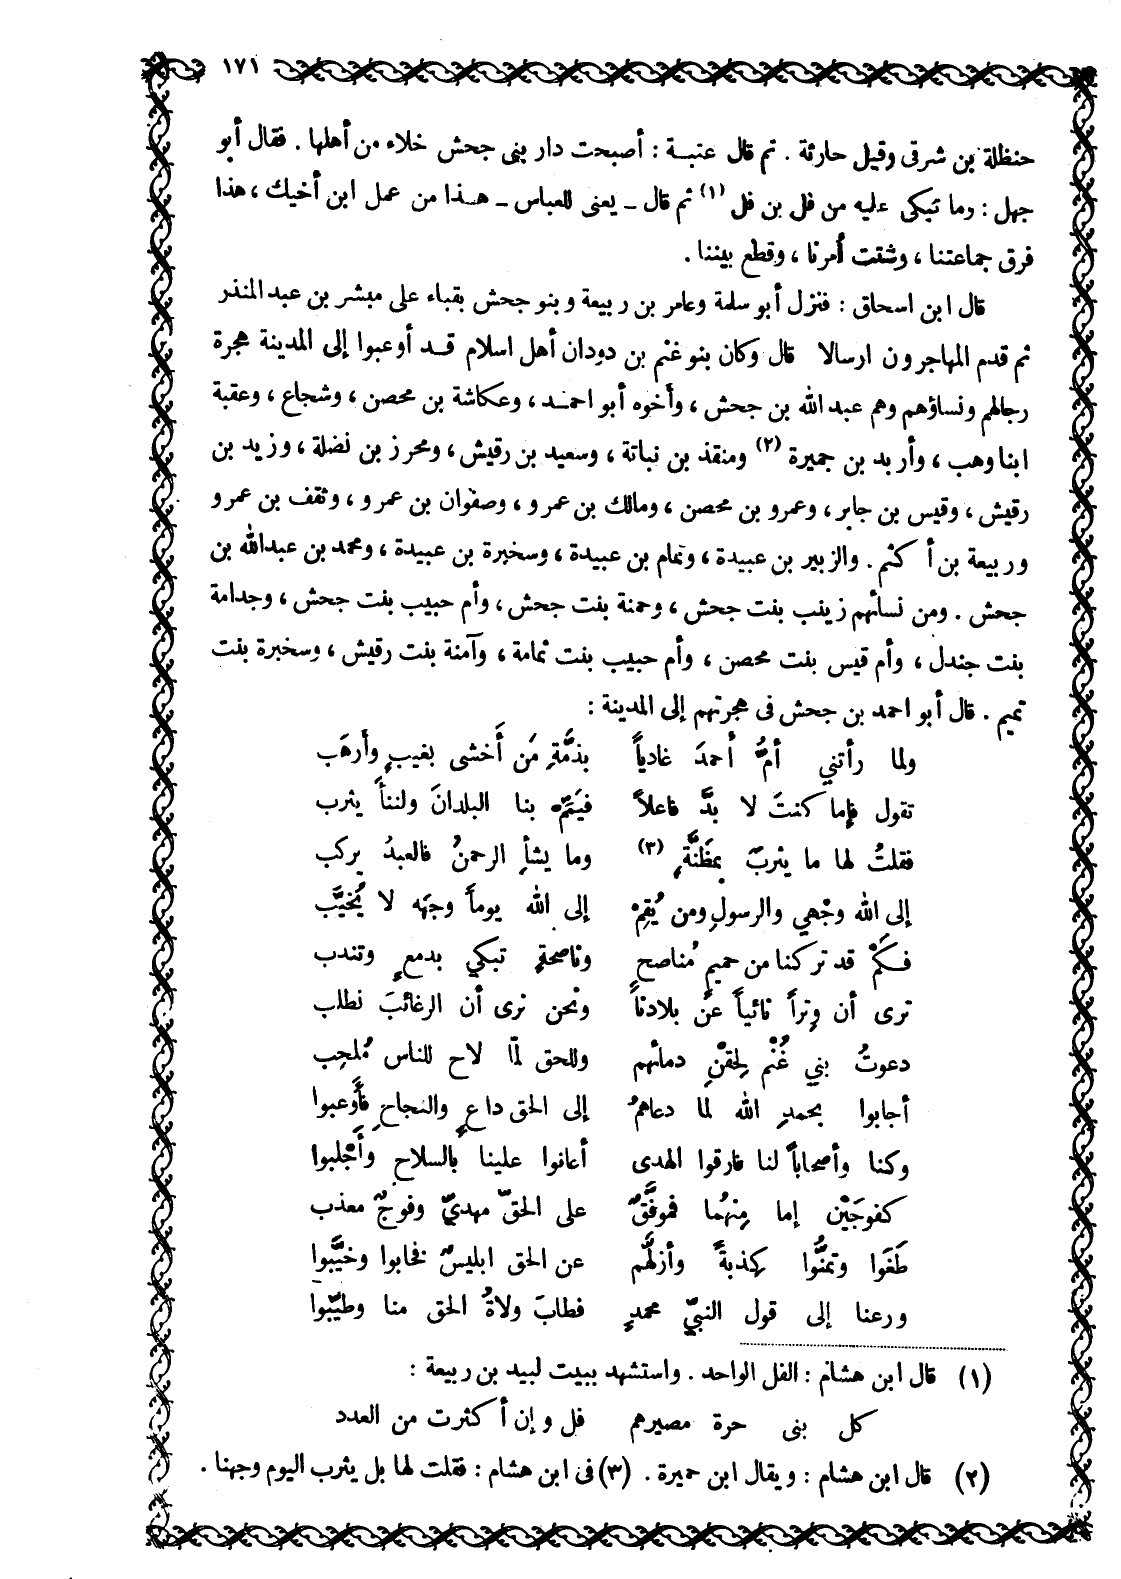 ١٧١
حنظلة بن شرقى وقيل حارثة . ثم قال عتبـة : أصبحت دار بنى جحش خلاء من أهلها . فقال أبو
جهل : وما تبكى عليه من فل بن فل (١) ثم قال ـ يعنى للعباس ـ هـذا من عمل ابن أخيك ، هذا
فرق جماعتنا ، وشتت أمرنا ، وقطع بيننا .
قال ابن اسحاق : فنزل أبو سلمة وعامر بن ربيعة وبنو جحش بقباء على مبشر بن عبد المنذر
ثم قدم المهاجرون ارسالا قال وكان بنو غنم بن دودان أهل اسلام قـد أوعبوا إلى المدينة هجرة
رجالهم ونساؤهم وهم عبد الله بن جحش ، وأخوه أبو احمـد ، وعكاشة بن محصن ، وشجاع ، وعقبة
ابنا وهب ، وأربد بن جميرة (٢) ومنقذ بن نباتة ، وسعيد بن رقيش ، ومحرز بن نضلة ، وزيد بن
رقيش ، وقيس بن جابر ، وعمرو بن محصن ، ومالك بن عمرو ، وصفوان بن عمرو ، وثقف بن عمرو
وربيعة بن أكثم . والزبير بن عبيدة ، وتمام بن عبيدة ، وسخبرة بن عبيدة ، ومحمد بن عبدالله بن
جحش . ومن نسائهم زينب بنت جحش ، وحمنة بنت جحش ، وأم حبيب بنت جحش ، وجدامة
بنت جندل ، وأم قيس بنت محصن ، وأم حبيب بنت ثمامة ، وآمنة بنت رقيش ، وسخبرة بنت
تميم . قال أبو احمد بن جحش فى هجرتهم إلى المدينة :
ولما رأتني أمُّ أحمدَ غادياً بذمَّةِ مَن أَخشى بغيبٍ وأرهَب
تقول فإما كنتَ لا بدَّ فاعلاً فيَمّم بنا البلدانَ ولننأَ يثرب
فقلتُ لها ما يثربٌ بمظَنَّةٍ (٣) وما يشأِ الرحمنُ فالعبدُ يركب
إلى الله وجْهي والرسولِ ومن يُقِمْ إلى الله يوماً وجهَه لا يُخيَّب
فكَمْ قد تركنا من حميمٍ مُناصحٍ وناصحةٍ تبكي بدمعٍ وتندب
ترى أن وِتراً نائياً عَنْ بلادنا ونحن نرى أن الرغائبَ نطلب
دعوتُ بني غُنْم لحقْنِ دمائهم وللحق لمّا لاح للناس مُلحِب
أجابوا بحمدِ الله لما دعاهمُ إلى الحق داعٍ والنجاحِ فأَوعبوا
وكنا وأصحاباً لنا فارقوا الهدى أعانوا علينا بالسلاح وأَجْلبوا
كفوجَيْن إما مِنهُما فموفَّقٌ على الحقّ مهديّ وفوجٌ معذب
طَغَوا وتمنُّوا كِذبةً وأزلَّهم عن الحق ابليسٌ فخابوا وخيَّبوا
ورعنا إلى قول النبيّ محمدٍ فطابَ ولاةُ الحق منا وطيّبوا
(١) قال ابن هشام : الفل الواحد . واستشهد ببيت لبيد بن ربيعة :
كل بنى حرة مصيرهم فل وإن أكثرت من العدد
(٢) قال ابن هشام : ويقال ابن حميرة . (٣) فى ابن هشام : فقلت لها بل يثرب اليوم وجهنا .